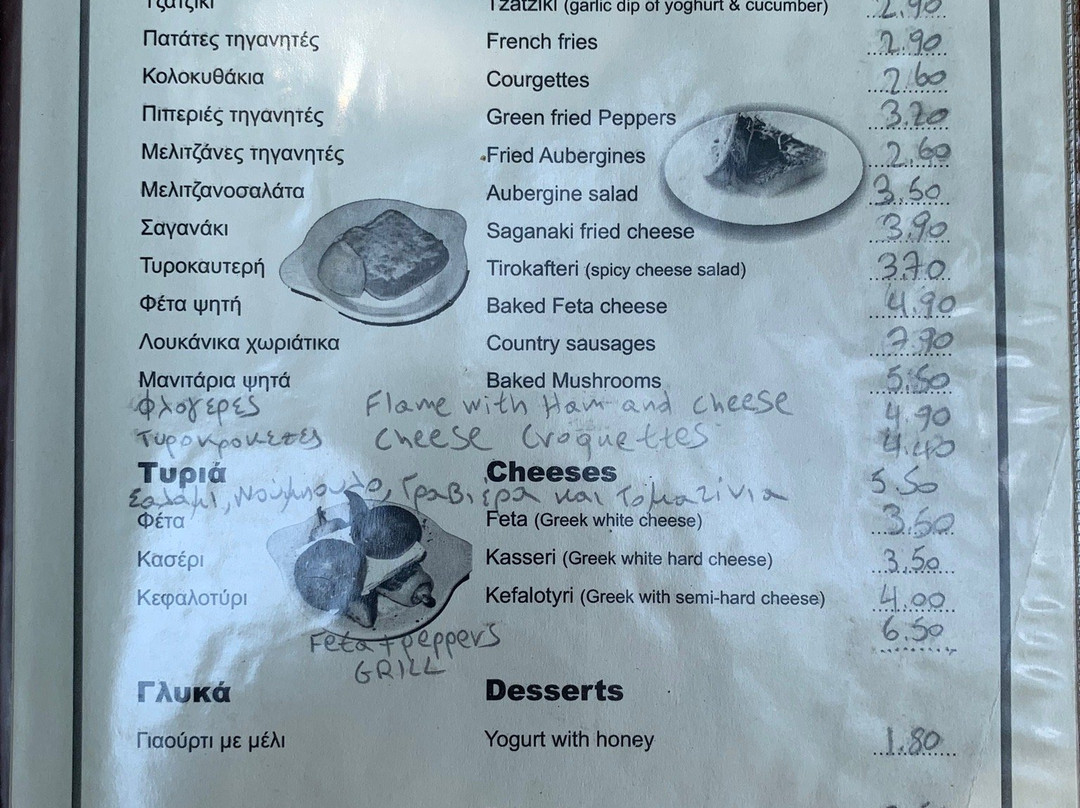 Τζατζίκι Tzatziki (garlic dip of yoghurt & cucumber) 2.90
Πατάτες τηγανητές French fries 2.90
Κολοκυθάκια Courgettes 2.60
Πιπεριές τηγανητές Green fried Peppers 3.20
Μελιτζάνες τηγανητές Fried Aubergines 2.60
Μελιτζανοσαλάτα Aubergine salad 3.50
Σαγανάκι Saganaki fried cheese 3.90
Τυροκαυτερή Tirokafteri (spicy cheese salad) 3.70
Φέτα ψητή Baked Feta cheese 4.90
Λουκάνικα χωριάτικα Country sausages 7.90
Μανιτάρια ψητά Baked Mushrooms 5.50
Φλογέρες Flame with Ham and cheese 4.90
Τυροκροκετες cheese croquettes 4.40
Τυριά Cheeses
Σαλάμι, Νούμπουλο, Γραβιερα και Τοματίνια 5.50
Φέτα Feta (Greek white cheese) 3.50
Κασέρι Kasseri (Greek white hard cheese) 3.50
Κεφαλοτύρι Kefalotyri (Greek with semi-hard cheese) 4.00
Feta + peppers 6.50
GRILL
Γλυκά Desserts
Γιαούρτι με μέλι Yogurt with honey 1.80